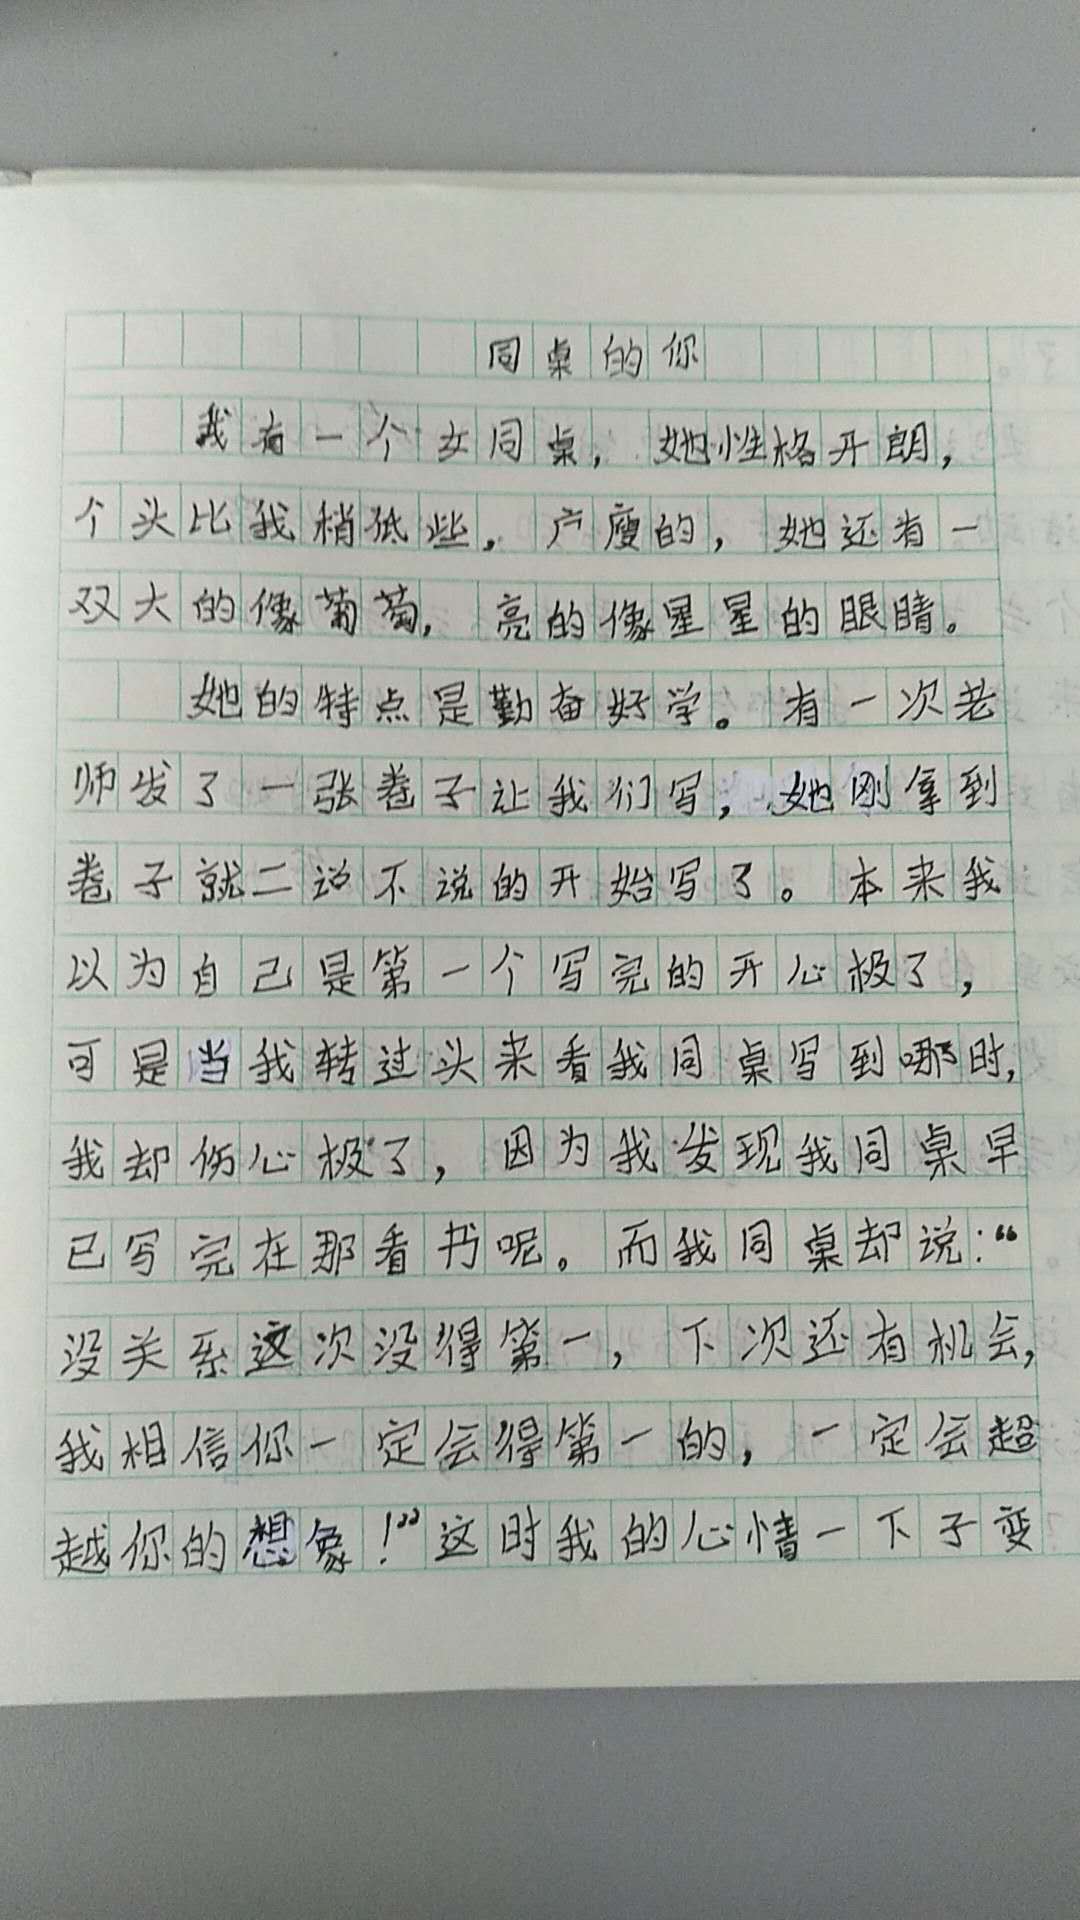 同桌的你
我有一个女同桌，她性格开朗，
个头比我稍低些，瘦的，她还有一
双大的像葡萄，亮的像星星的眼睛。
她的特点是勤奋好学。有一次老
师发了一张卷子让我们写，她刚拿到
卷子就二话不说的开始写了。本来我
以为自己是第一个写完的开心极了，
可是当我转过头来看我同桌写到哪时，
我却伤心极了，因为我发现我同桌早
已写完在那看书呢。而我同桌却说：“
没关系这次没得第一，下次还有机会，
我相信你一定会得第一的，一定会超
越你的想象！”这时我的心情一下子变